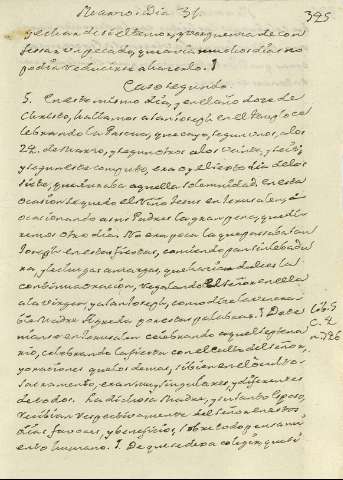 Marzo. Dia 31. 395
y echar de si el temor, y verguenza de con
fessar un pecado, que avia muchos dias no
podia reducirse a hacerlo.
Caso segundo.
5. En este mismo dia, y en el año doze de
Christo, hallamos a San Joseph en el templo ce
lebrando la Pascua, que cayo, segun unos, a los
24. de Marzo, y segun otros a los veinte, y seis,
y segun este computo, era oy el sexto dia de los
siete, que duraba aquella solemnidad, en esta
ocasion se quedo el Niño Jesus en Jerusalen,
ocasionando a sus Padres la gran pena, que dire
mos otro dia. No era poca la que passaba San
Joseph en estas fiestas, comiendo pan sin levadu
ra, y lechugas amargas, que hacia dulces la
continua oracion, regalando el Señor en ella
a la Virgen, y a San Joseph, como dice la venera
ble Madre Agreda por estas palabras. Dete
nianse en Jerusalen celebrando aquel septena
rio, celebrando la fiesta con el culto del Señor,
y oraciones que los demas, si bien en el oculto
sacramento, eran muy singulares, y diferentes
de todos. La dichosa Madre, y su santo Esposo,
recibian respectivamente del Señor en estos
dias favores, y beneficios, sobre todo pensami
ento humano. De que se dexa colegir, que si
lib. 5
C. 4
n. 746